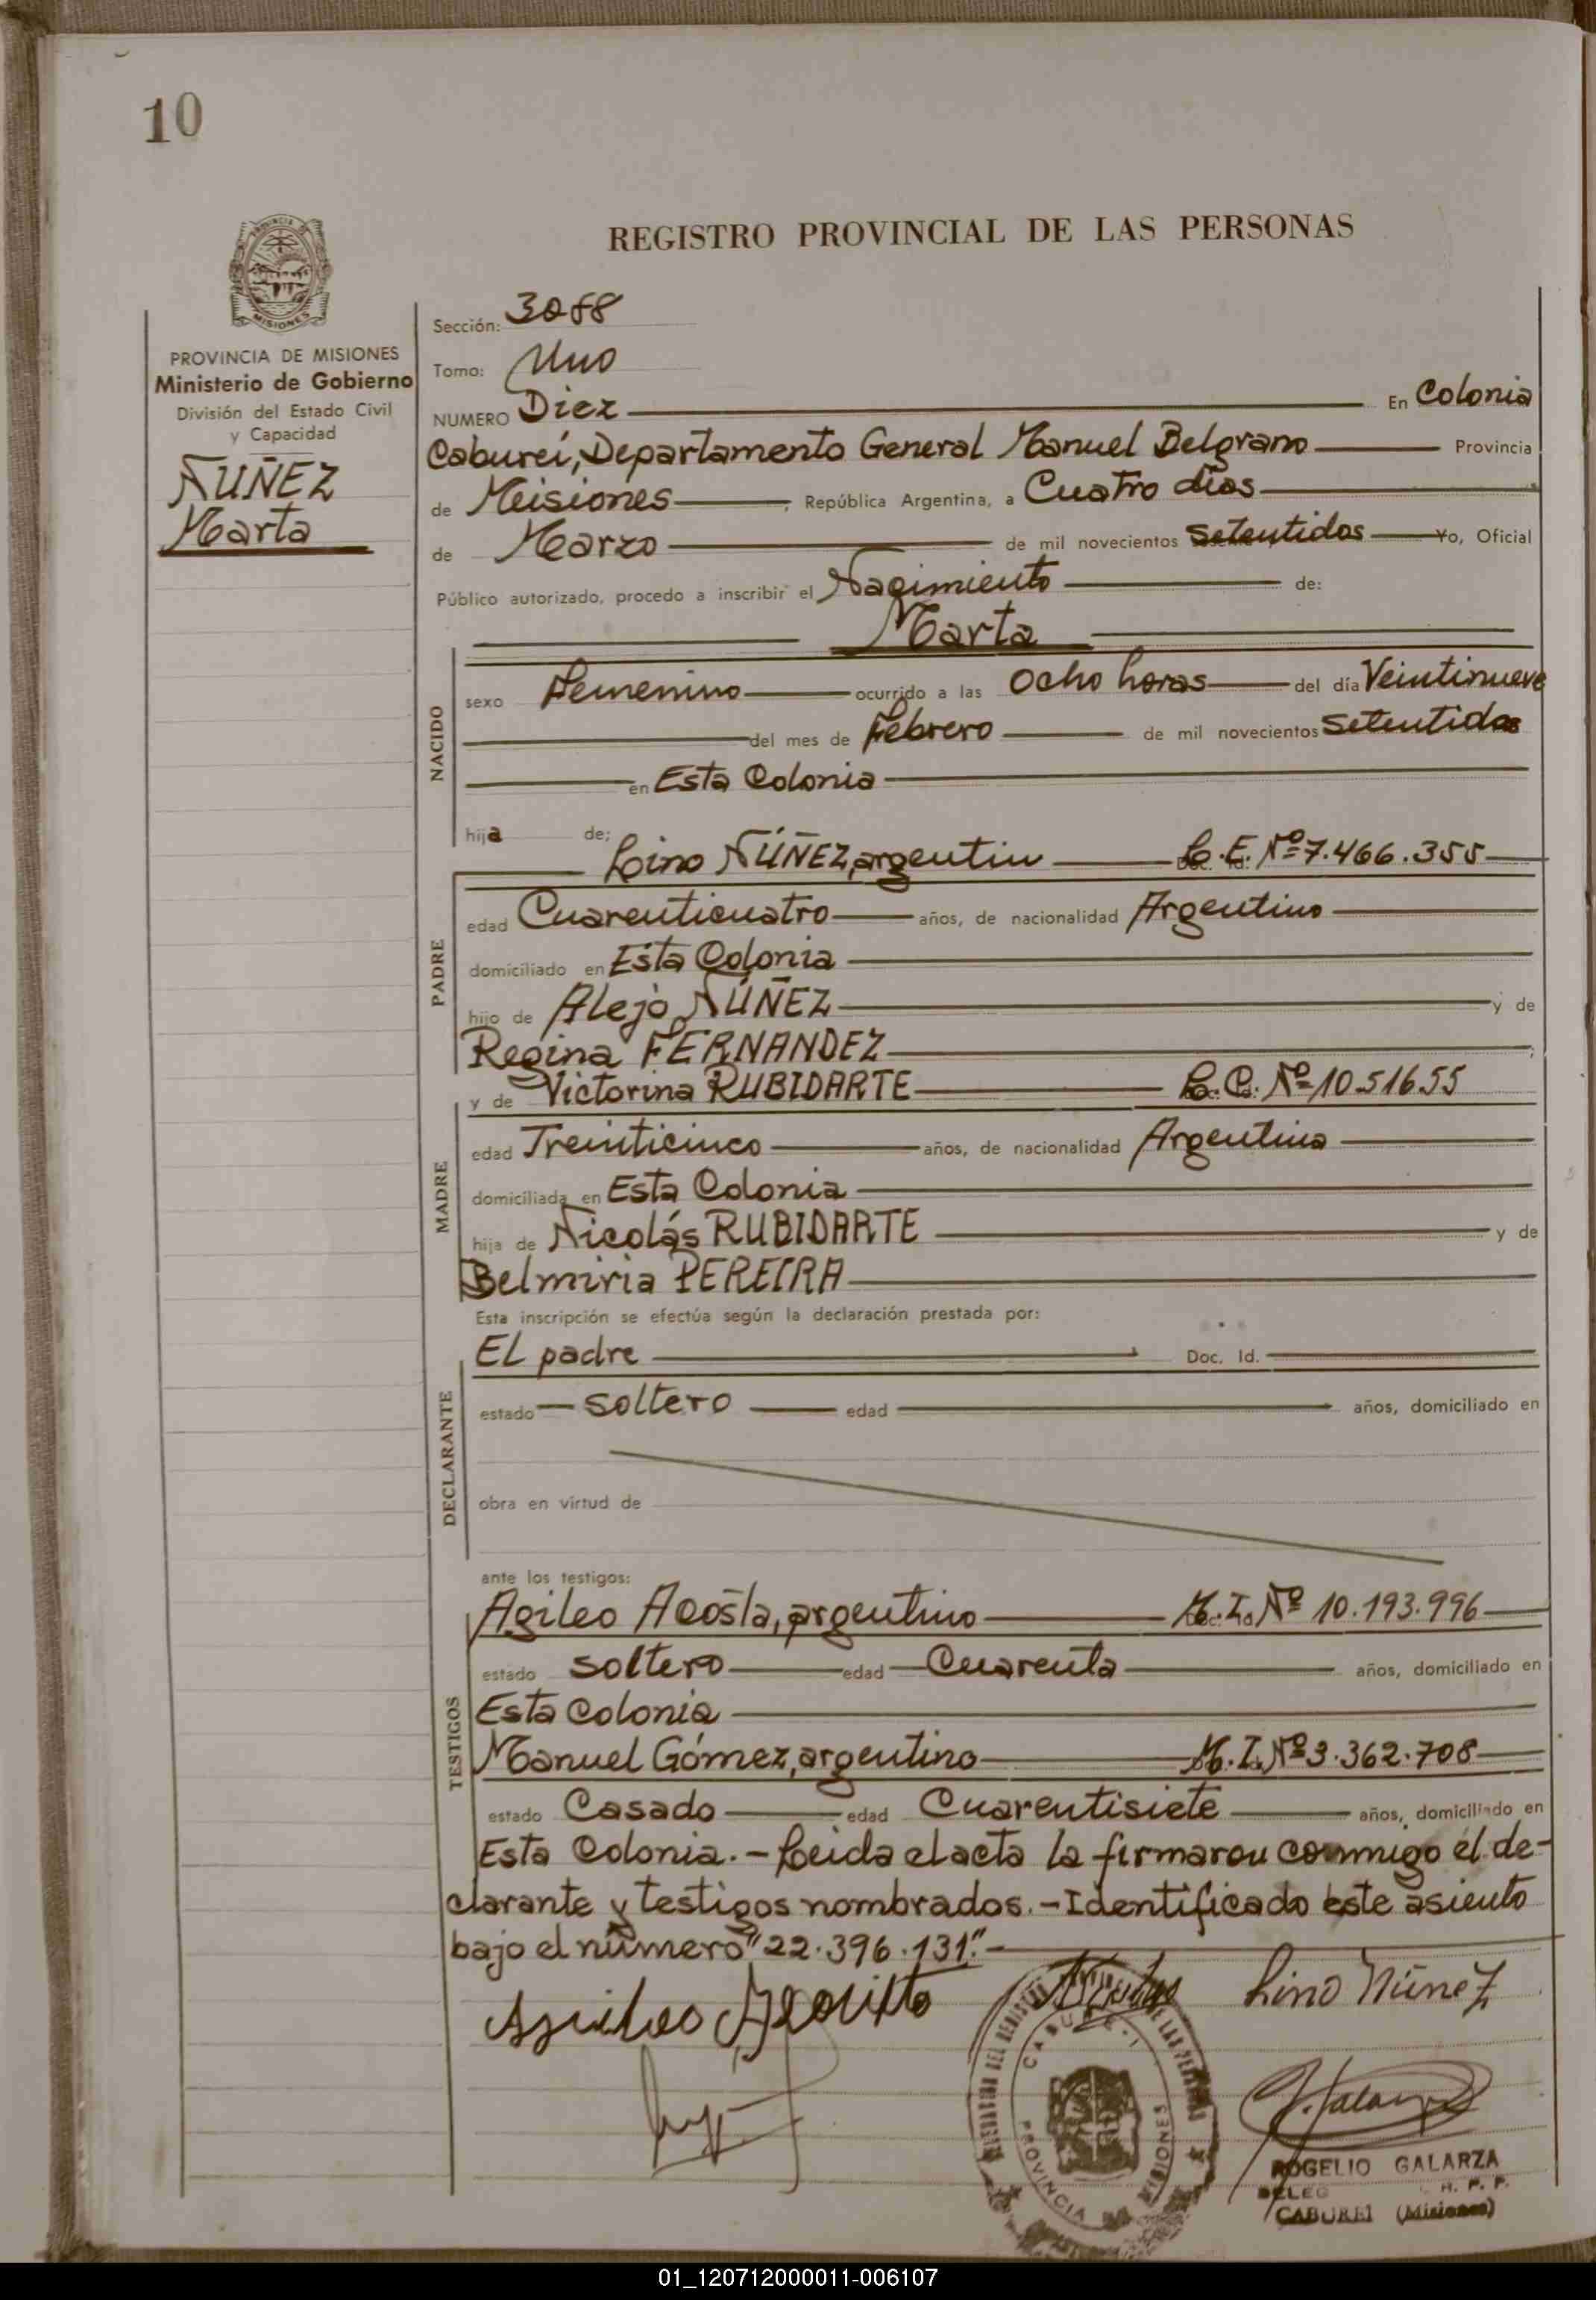 10
REGISTRO PROVINCIAL DE LAS PERSONAS
MISIONES
PROVINCIA DE MISIONES
Ministerio de Gobierno
División del Estado Civil
y Capacidad
ÑUÑEZ
Marta
Sección: 3088
Tomo: Uno
NUMERO Diez En Colonia
Cabureí, Departamento General Manuel Belgrano Provincia
de Meisiones, República Argentina, a Cuatro días
de Marzo de mil novecientos Setentidos Yo, Oficial
Público autorizado, procedo a inscribir el Nacimiento de:
Marta
NACIDO
sexo Femenino ocurrido a las Ocho horas del día Veintinueve
del mes de Febrero de mil novecientos Setentidos
en Esta Colonia
hija de:
Lino ÑÚÑEZ, argentin L.E. Nº 7.466.355
PADRE
edad Cuarenticuatro años, de nacionalidad Argentino
domiciliado en Esta Colonia
hijo de Alejo ÑÚÑEZ y de
Regina FERNANDEZ
y de Victorina RUBIDARTE L.C. Nº 10.516.55
MADRE
edad Treinticinco años, de nacionalidad Argentina
domiciliada en Esta Colonia
hija de Nicolás RUBIDARTE y de
Belmiria PEREIRA
Esta inscripción se efectúa según la declaración prestada por:
DECLARANTE
EL padre Doc. Id.
estado soltero edad años, domiciliado en
obra en virtud de
ante los testigos:
TESTIGOS
Agileo Acosta, argentino M.I. Nº 10.193.996
estado soltero edad Cuarenta años, domiciliado en
Esta Colonia
Manuel Gómez, argentino M.I. Nº 3.362.708
estado Casado edad Cuarentisiete años, domiciliado en
Esta Colonia.- Leida el acta la firmarou conmigo el de-
clarante y testigos nombrados.- Identificado este asiento
bajo el número "22.396.131."-
Lino Núnez
CABUREI
PROVINCIA MISIONES
ROGELIO GALARZA
DELEG R. P. P.
CABUREI (Misiones)
01_120712000011-006107